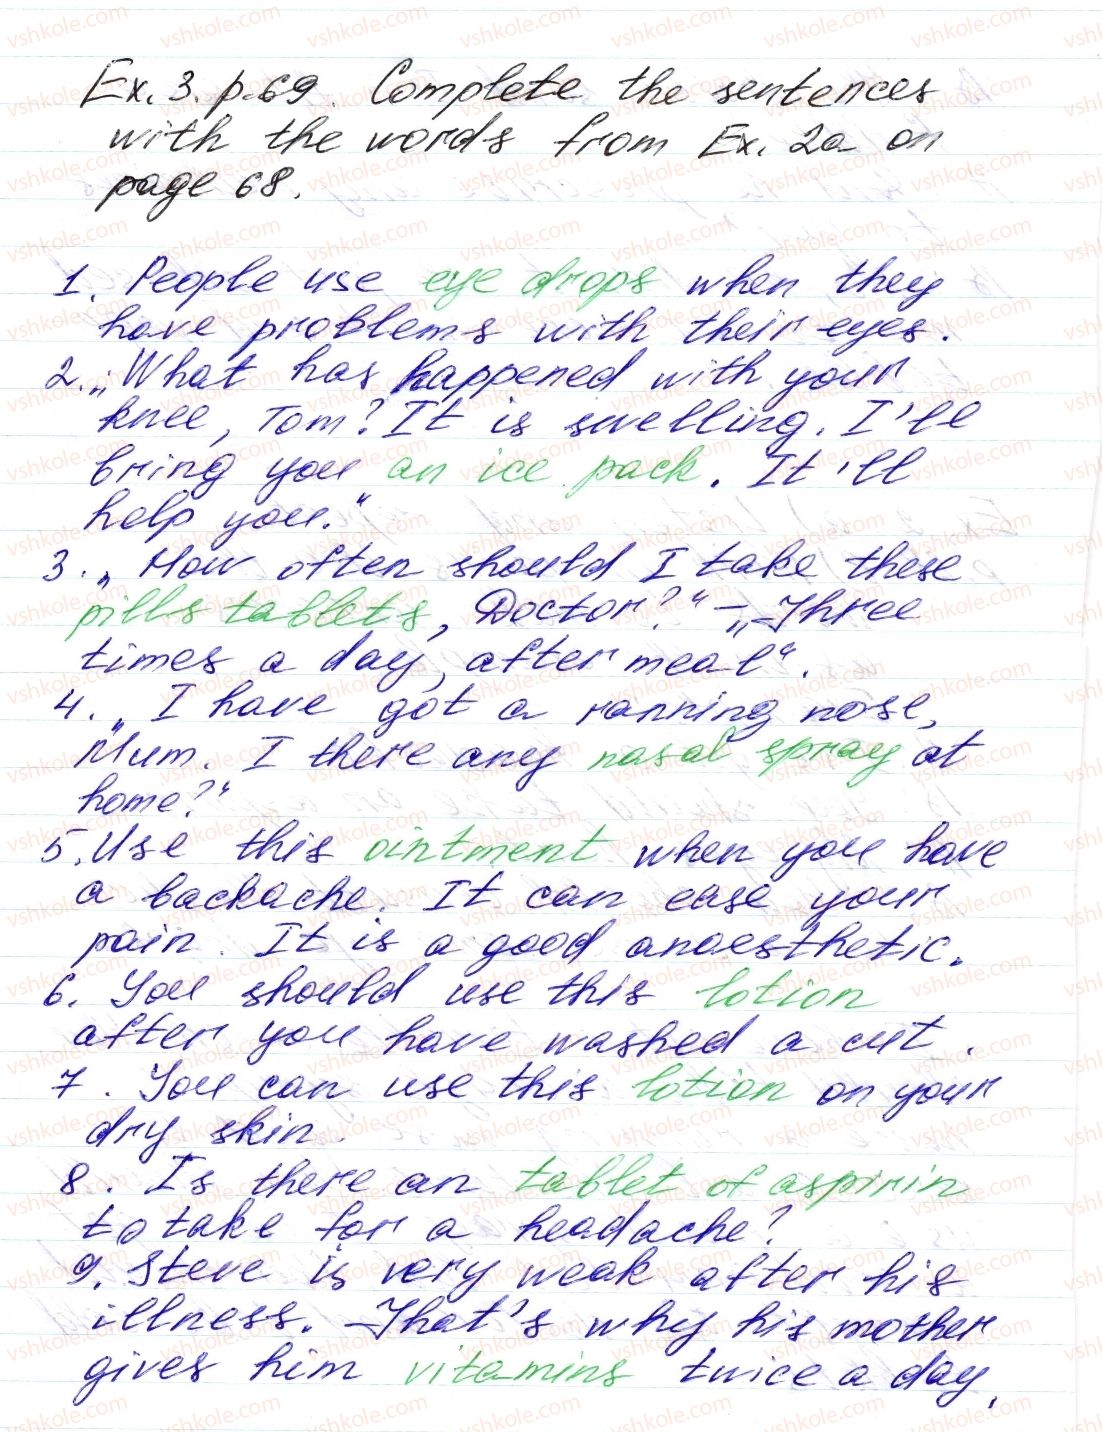 Ex. 3. p. 69. Complete the sentences
with the words from Ex. 2a on
page 68.
1. People use eye drops when they
have problems with their eyes.
2. „What has happened with your
knee, Tom? It is swelling. I'll
bring you an ice pack. It'll
help you."
3. „How often should I take these
pills tablets, Doctor?" – „Three
times a day, after meal".
4. „I have got a ranning nose,
Mum. I there any nasal spray at
home?"
5. Use this ointment when you have
a backache. It can ease your
pain. It is a good anaesthetic.
6. You should use this lotion
after you have washed a cut.
7. You can use this lotion on your
dry skin.
8. Is there an tablet of aspirin
to take for a headache?
9. Steve is very weak after his
illness. That's why his mother
gives him vitamins twice a day.